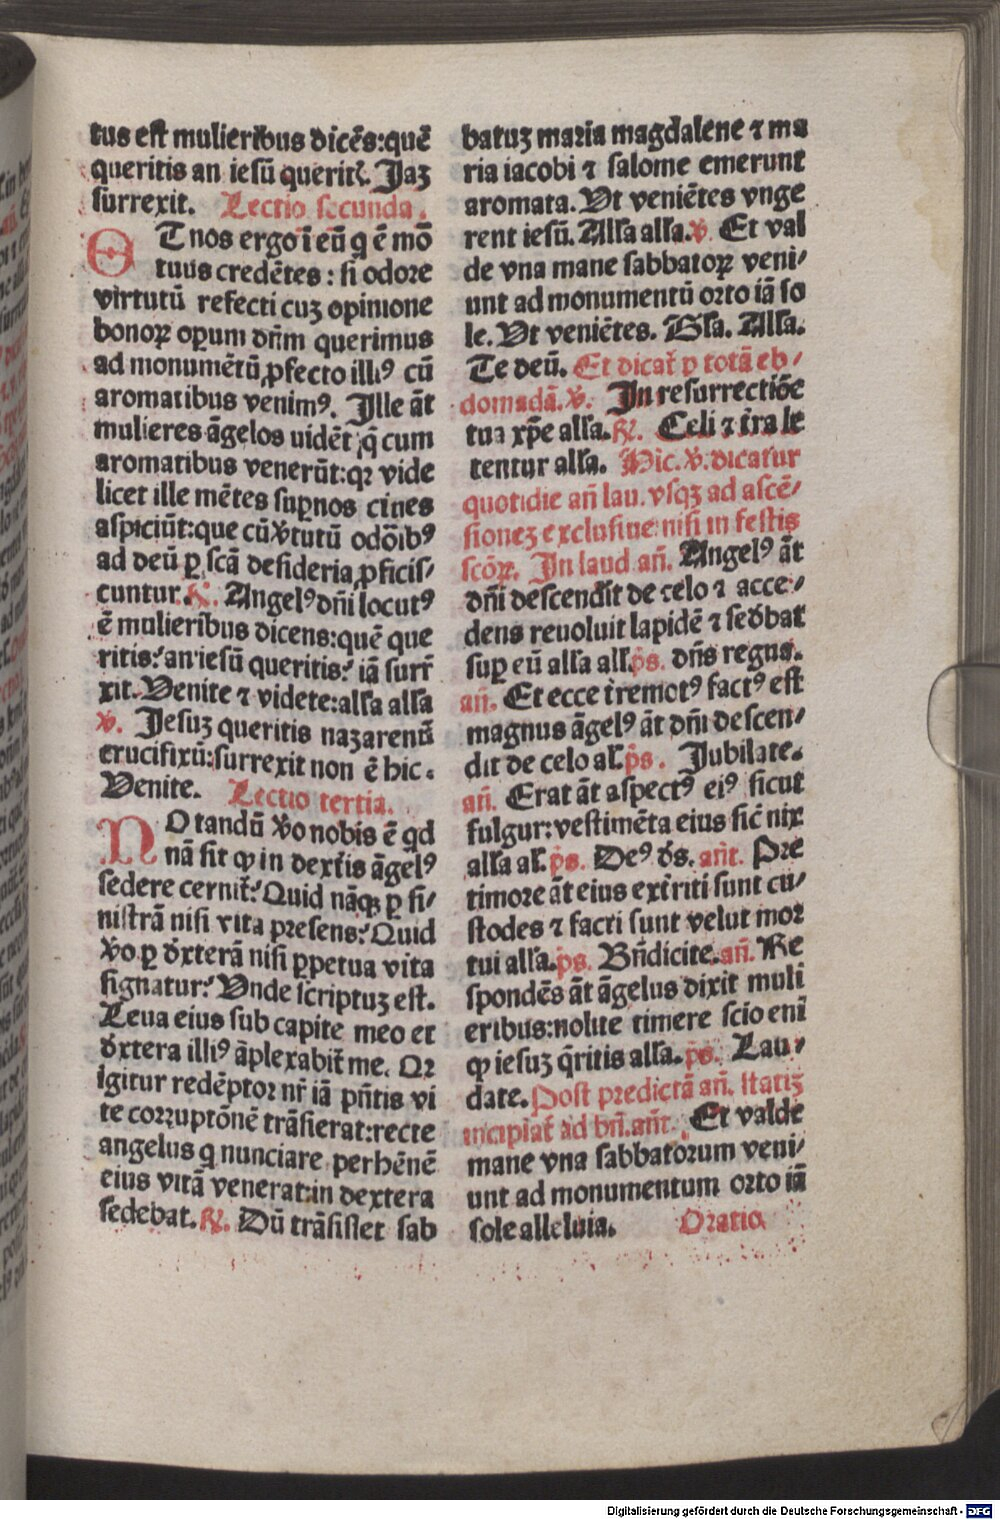 tus est mulieribus dicēs:quē
queritis an iesū querit. Jaꝫ
surrexit. Lectio secunda.
ET nos ergo ī eū q̄ ē mō
tuus credētes : si odore
virtutū refecti cuꝫ opinione
bonoꝝ oꝑum dn̄m querimus
ad monumētū ꝓfecto illiꝰ cū
aromatibus venimꝰ. Ille āt
mulieres āgelos uidēt q̄ cum
aromatibus venerūt:qꝛ vide
licet ille mētes suꝑnos ciues
aspiciūt:que cū v̾tutū odōibꝰ
ad deū ꝑ scā desideria ꝓficis/
cuntur. ℟. Angelꝰ dn̄i locutꝰ
ē mulieribus dicens:quē que
ritis? an iesū queritis? iā surr̄
xit. Venite ⁊ videte:alla alla
℣. Jesuꝫ queritis nazarenū
crucifixū:surrexit non ē hic.
Venite. Lectio tertia.
NO tandū v̾o nobis ē qd
nā sit ꝙ in dext̾is āgelꝰ
sedere cernit̾? Quid nāqꝫ ꝑ si/
nistrā nisi vita presens? Quid
v̾o ꝑ dxterā nisi ꝑpetua vita
signatur? Vnde scriptuꝫ est.
Leua eius sub capite meo et
dxtera illiꝰ āplexabit̾ me. Qꝛ
igitur redēptor nr̄ iā pn̄tis vi
te corruptōnē trāsierat:recte
angelus q nunciare perhēnē
eius vitā venerat:in dextera
sedebat. ℟. Dū trāsisset sab
batuꝫ maria magdalene ⁊ ma
ria iacobi ⁊ salome emerunt
aromata. Vt veniētes vnge
rent iesū. Alla alla. ℣. Et val
de vna mane sabbatoꝝ veni/
unt ad monumentū orto iā so
le. Vt veniētes. Gla. Alla.
Te deū. Et dicat̾ ꝑ totā eb/
domadā. ℣. In resurrectiōe
tua xp̄e alla. ℟. Celi ⁊ t̾ra le
tentur alla. Hic. ℣. dicatur
quotidie an̄ lau. vsqꝫ ad ascē/
sionez exclusiue nisi in festis
scōꝝ. In laud an̄. Angelꝰ āt
dn̄i descendit de celo ⁊ acce/
dens reuoluit lapidē ⁊ sedbat
suꝑ eū alla all. p̄s. dn̄s regna.
an̄. Et ecce t̾remotꝰ factꝰ est
magnus āgelꝰ āt dn̄i descen/
dit de celo al. p̄s. Jubilate.
an̄. Erat āt aspectꝰ eiꝰ sicut
fulgur:vestimēta eius sic̄ nix
alla al. p̄s. Deꝰ ds. an̄t. Pre
timore āt eius ext̾riti sunt cu/
stodes ⁊ facti sunt velut mor
tui alla. p̄s. Bn̄dicite. an̄. Re
spondēs āt āgelus dixit muli
eribus:nolite timere scio enī
ꝙ iesuꝫ q̄ritis alla. p̄s. Lau/
date. Post predictā an̄. statiꝫ
incipiat̾ ad bn̄. an̄t. Et valde
mane vna sabbatorum veni/
unt ad monumentum orto iā
sole alleluia. Oratio
Digitalisierung gefördert durch die Deutsche Forschungsgemeinschaft - DFG